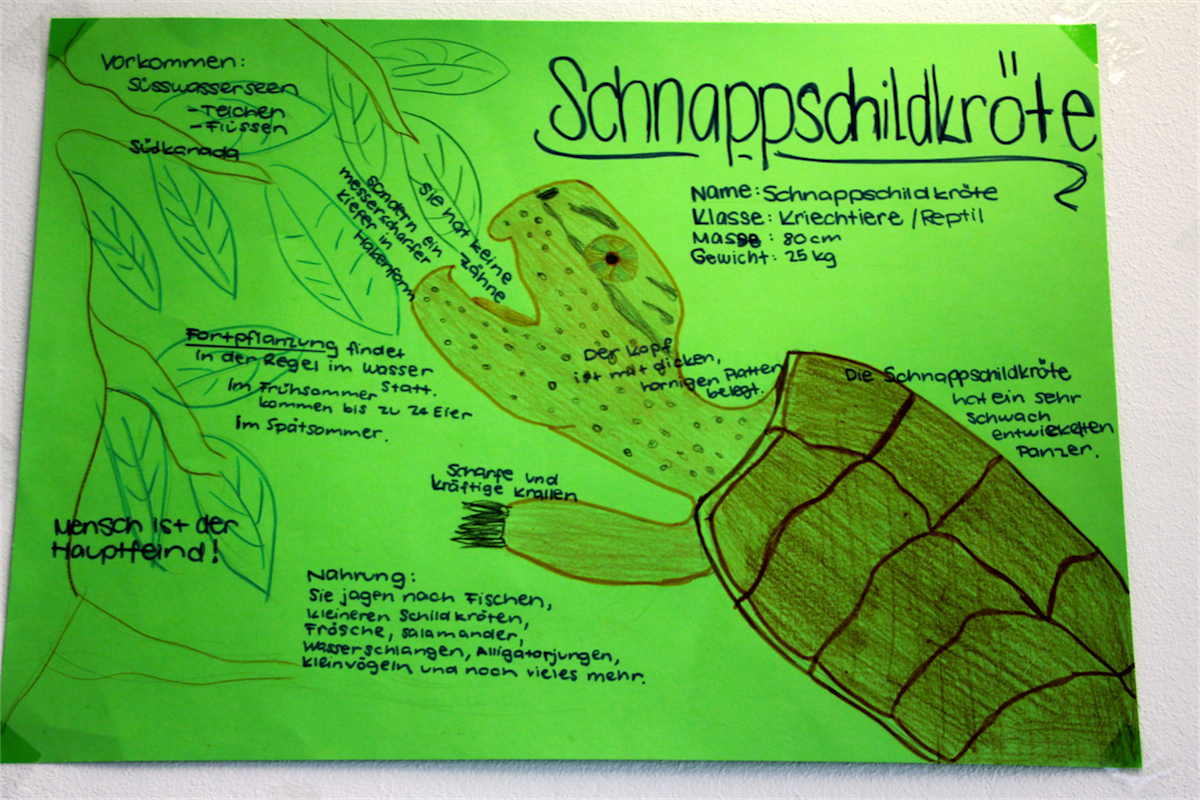 Schnappschildkröte
Vorkommen:
Süsswasserseen
-Teichen
-Flüssen
Südkanada
Name: Schnappschildkröte
Klasse: Kriechtiere / Reptil
Masse: 80cm
Gewicht: 25 kg
Sie hat keine
Zähne
sondern ein
messerscharfer
Kiefer in
Hakenform
Fortpflanzung findet
in der Regel im Wasser
statt.
Im Frühsommer
kommen bis zu 24 Eier
Im Spätsommer.
Der Kopf
ist mit dicken,
hornigen Platten
belegt.
Die Schnappschildkröte
hat ein sehr
schwach
entwickelten
Panzer.
Scharfe und
kräftige Krallen
Mensch ist der
Hauptfeind!
Nahrung:
Sie jagen nach Fischen,
kleineren Schildkröten,
Frösche, Salamander,
Wasserschlangen, Alligatorjungen,
Kleinvögeln und noch vieles mehr.